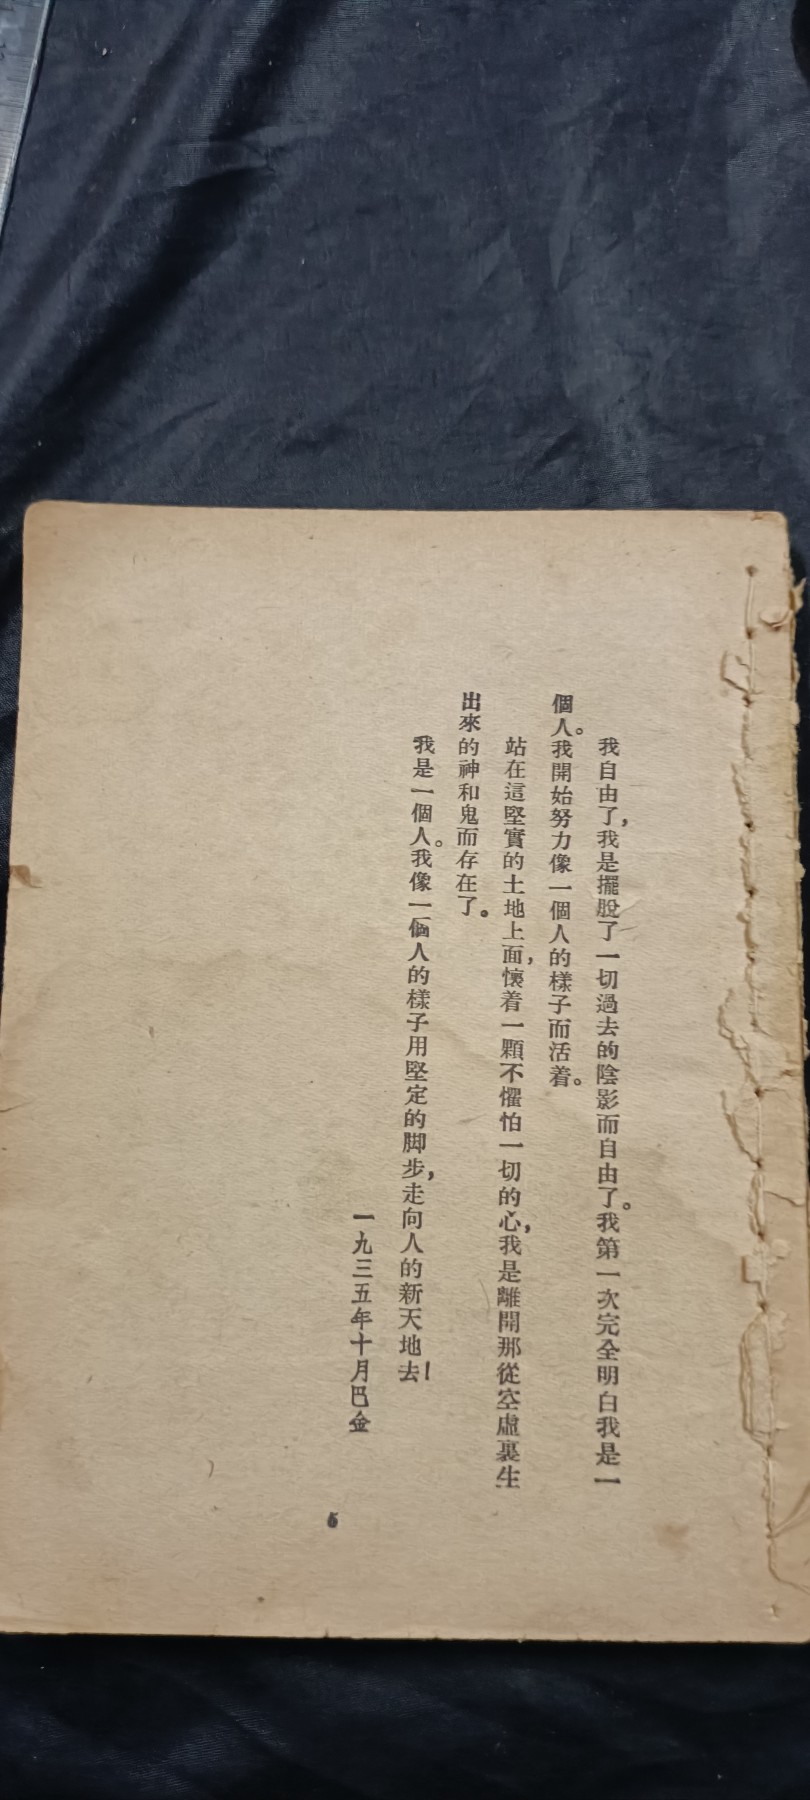 我自由了，我是擺脫了一切過去的陰影而自由了。我第一次完全明白我是一
個人。我開始努力像一個人的樣子而活着。
站在這堅實的土地上面，懷着一顆不懼怕一切的心，我是離開那從空虛裏生
出來的神和鬼而存在了。
我是一個人。我像一個人的樣子用堅定的脚步，走向人的新天地去！
一九三五年十月巴金